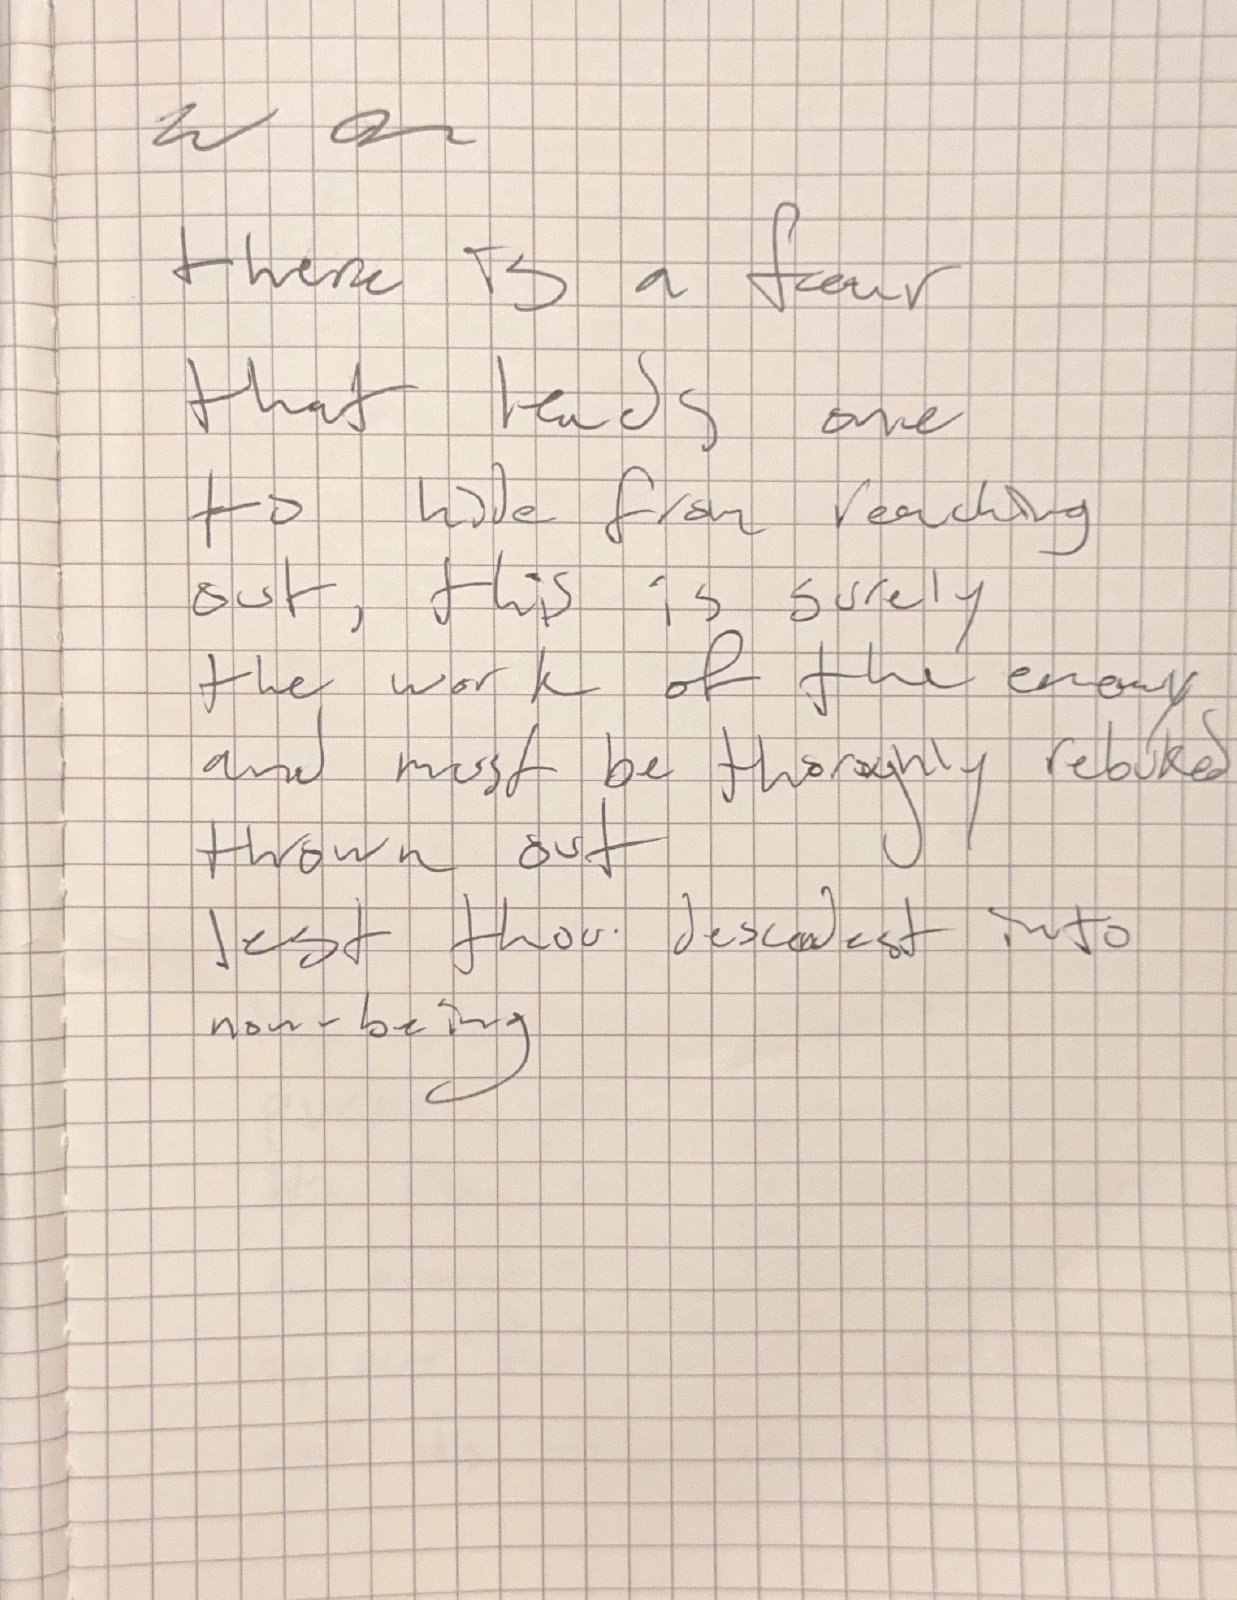 there is a fear
that leads one
to hide from reaching
out, this is surely
the work of the enemy
and must be thoroghly rebuked
thrown out
lest thou descendest into
non-being